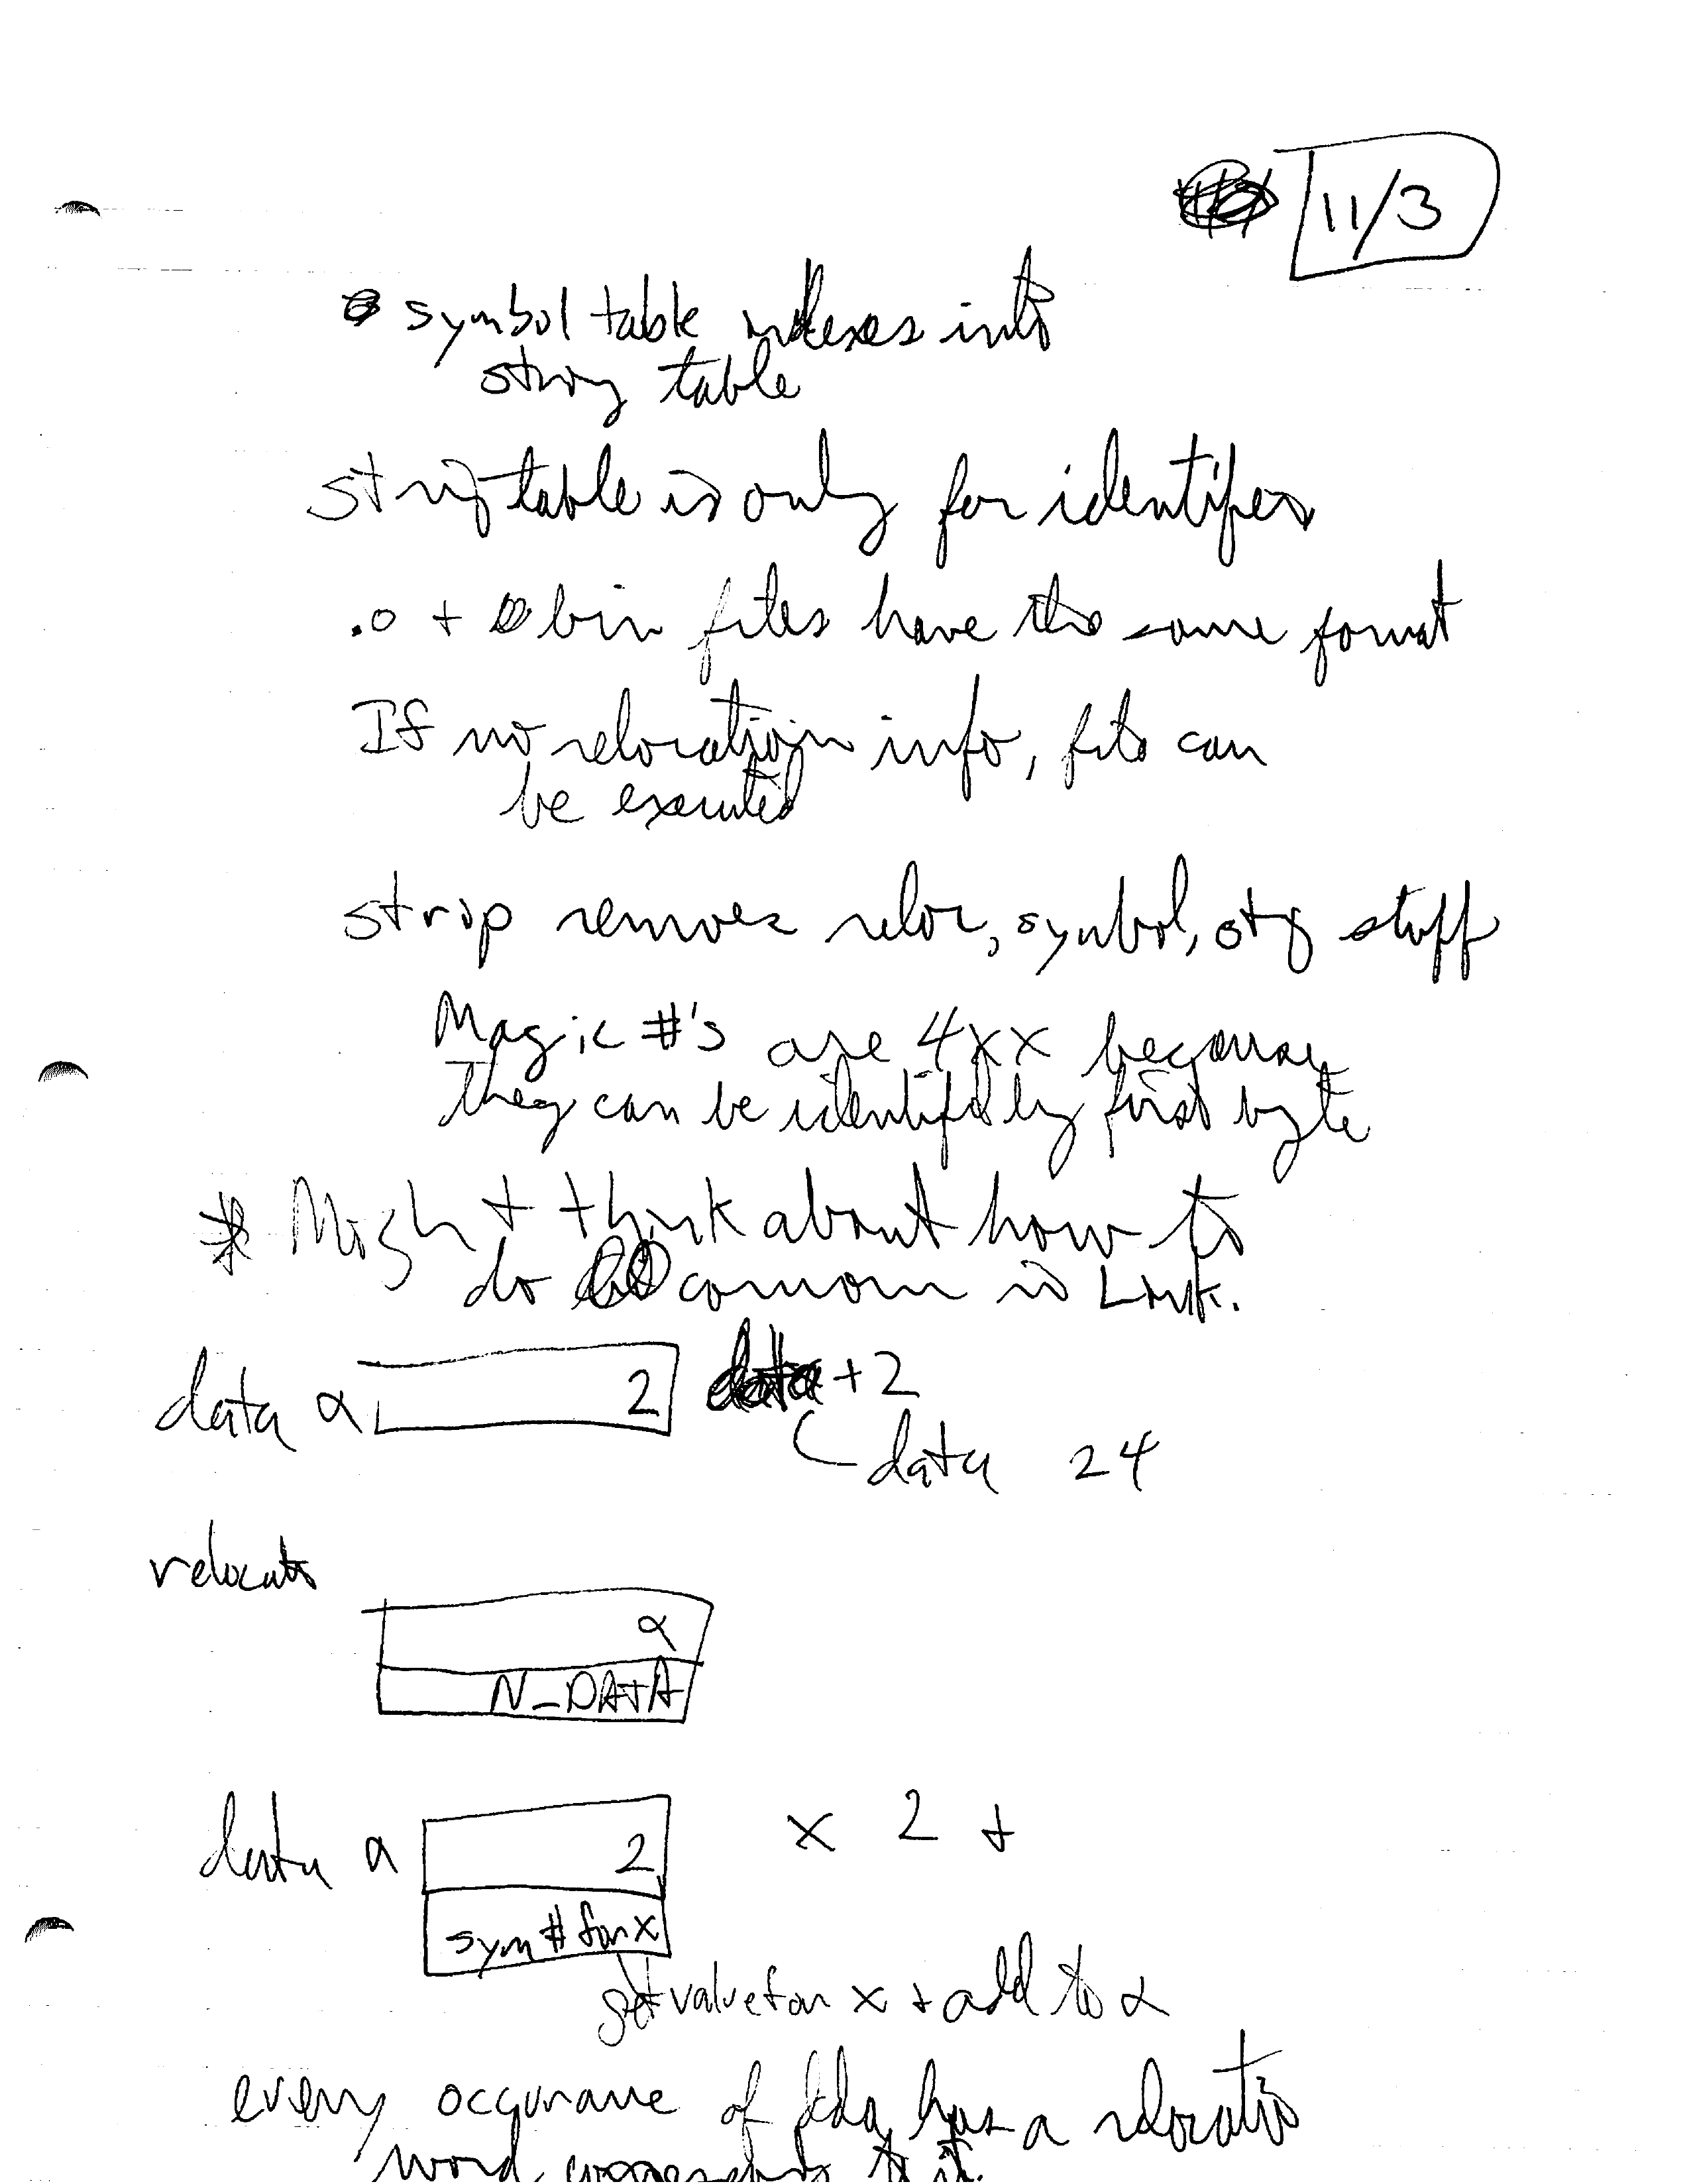 11/3
symbol table indexes into
string table
string table is only for identifers
.o + bin files have the same format
If no relocation info, file can
be executed
strip removes reloc, symbol, stg stuff
Magic #'s are 4xx because
they can be identified by first byte
* Might think about how to
do common in Link.
data α 2 data + 2
data 24
relocate
α
N_DATA
data α 2 x 2 +
sym # for x
get value for x + add to α
every occurance of has a relocatio
word corresponds to it.